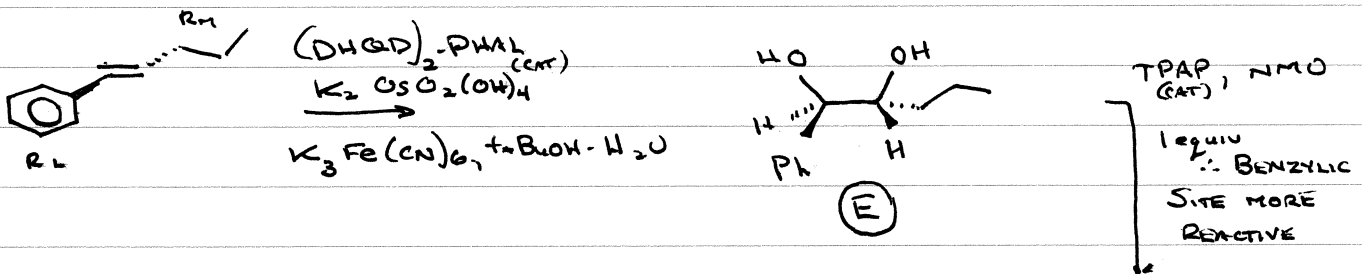 RM
(DHQD)2-PHAL (CAT)
K2 OsO2(OH)4
K3Fe(CN)6, t-BuOH-H2O
RL
HO OH
H
Ph H
E
TPAP (CAT), NMO
1 equiv
∴ BENZYLIC
SITE MORE
REACTIVE